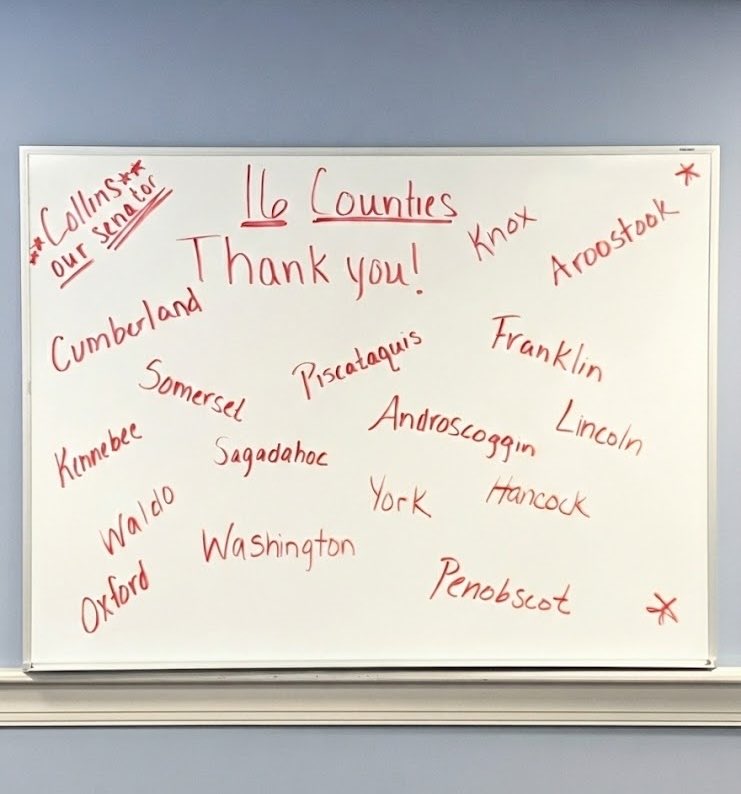 **Collins**
our senator
16 Counties
Thank you!
Knox
Aroostook
Cumberland
Piscataquis
Franklin
Somerset
Androscoggin
Lincoln
Kennebec
Sagadahoc
York
Hancock
Waldo
Washington
Oxford
Penobscot